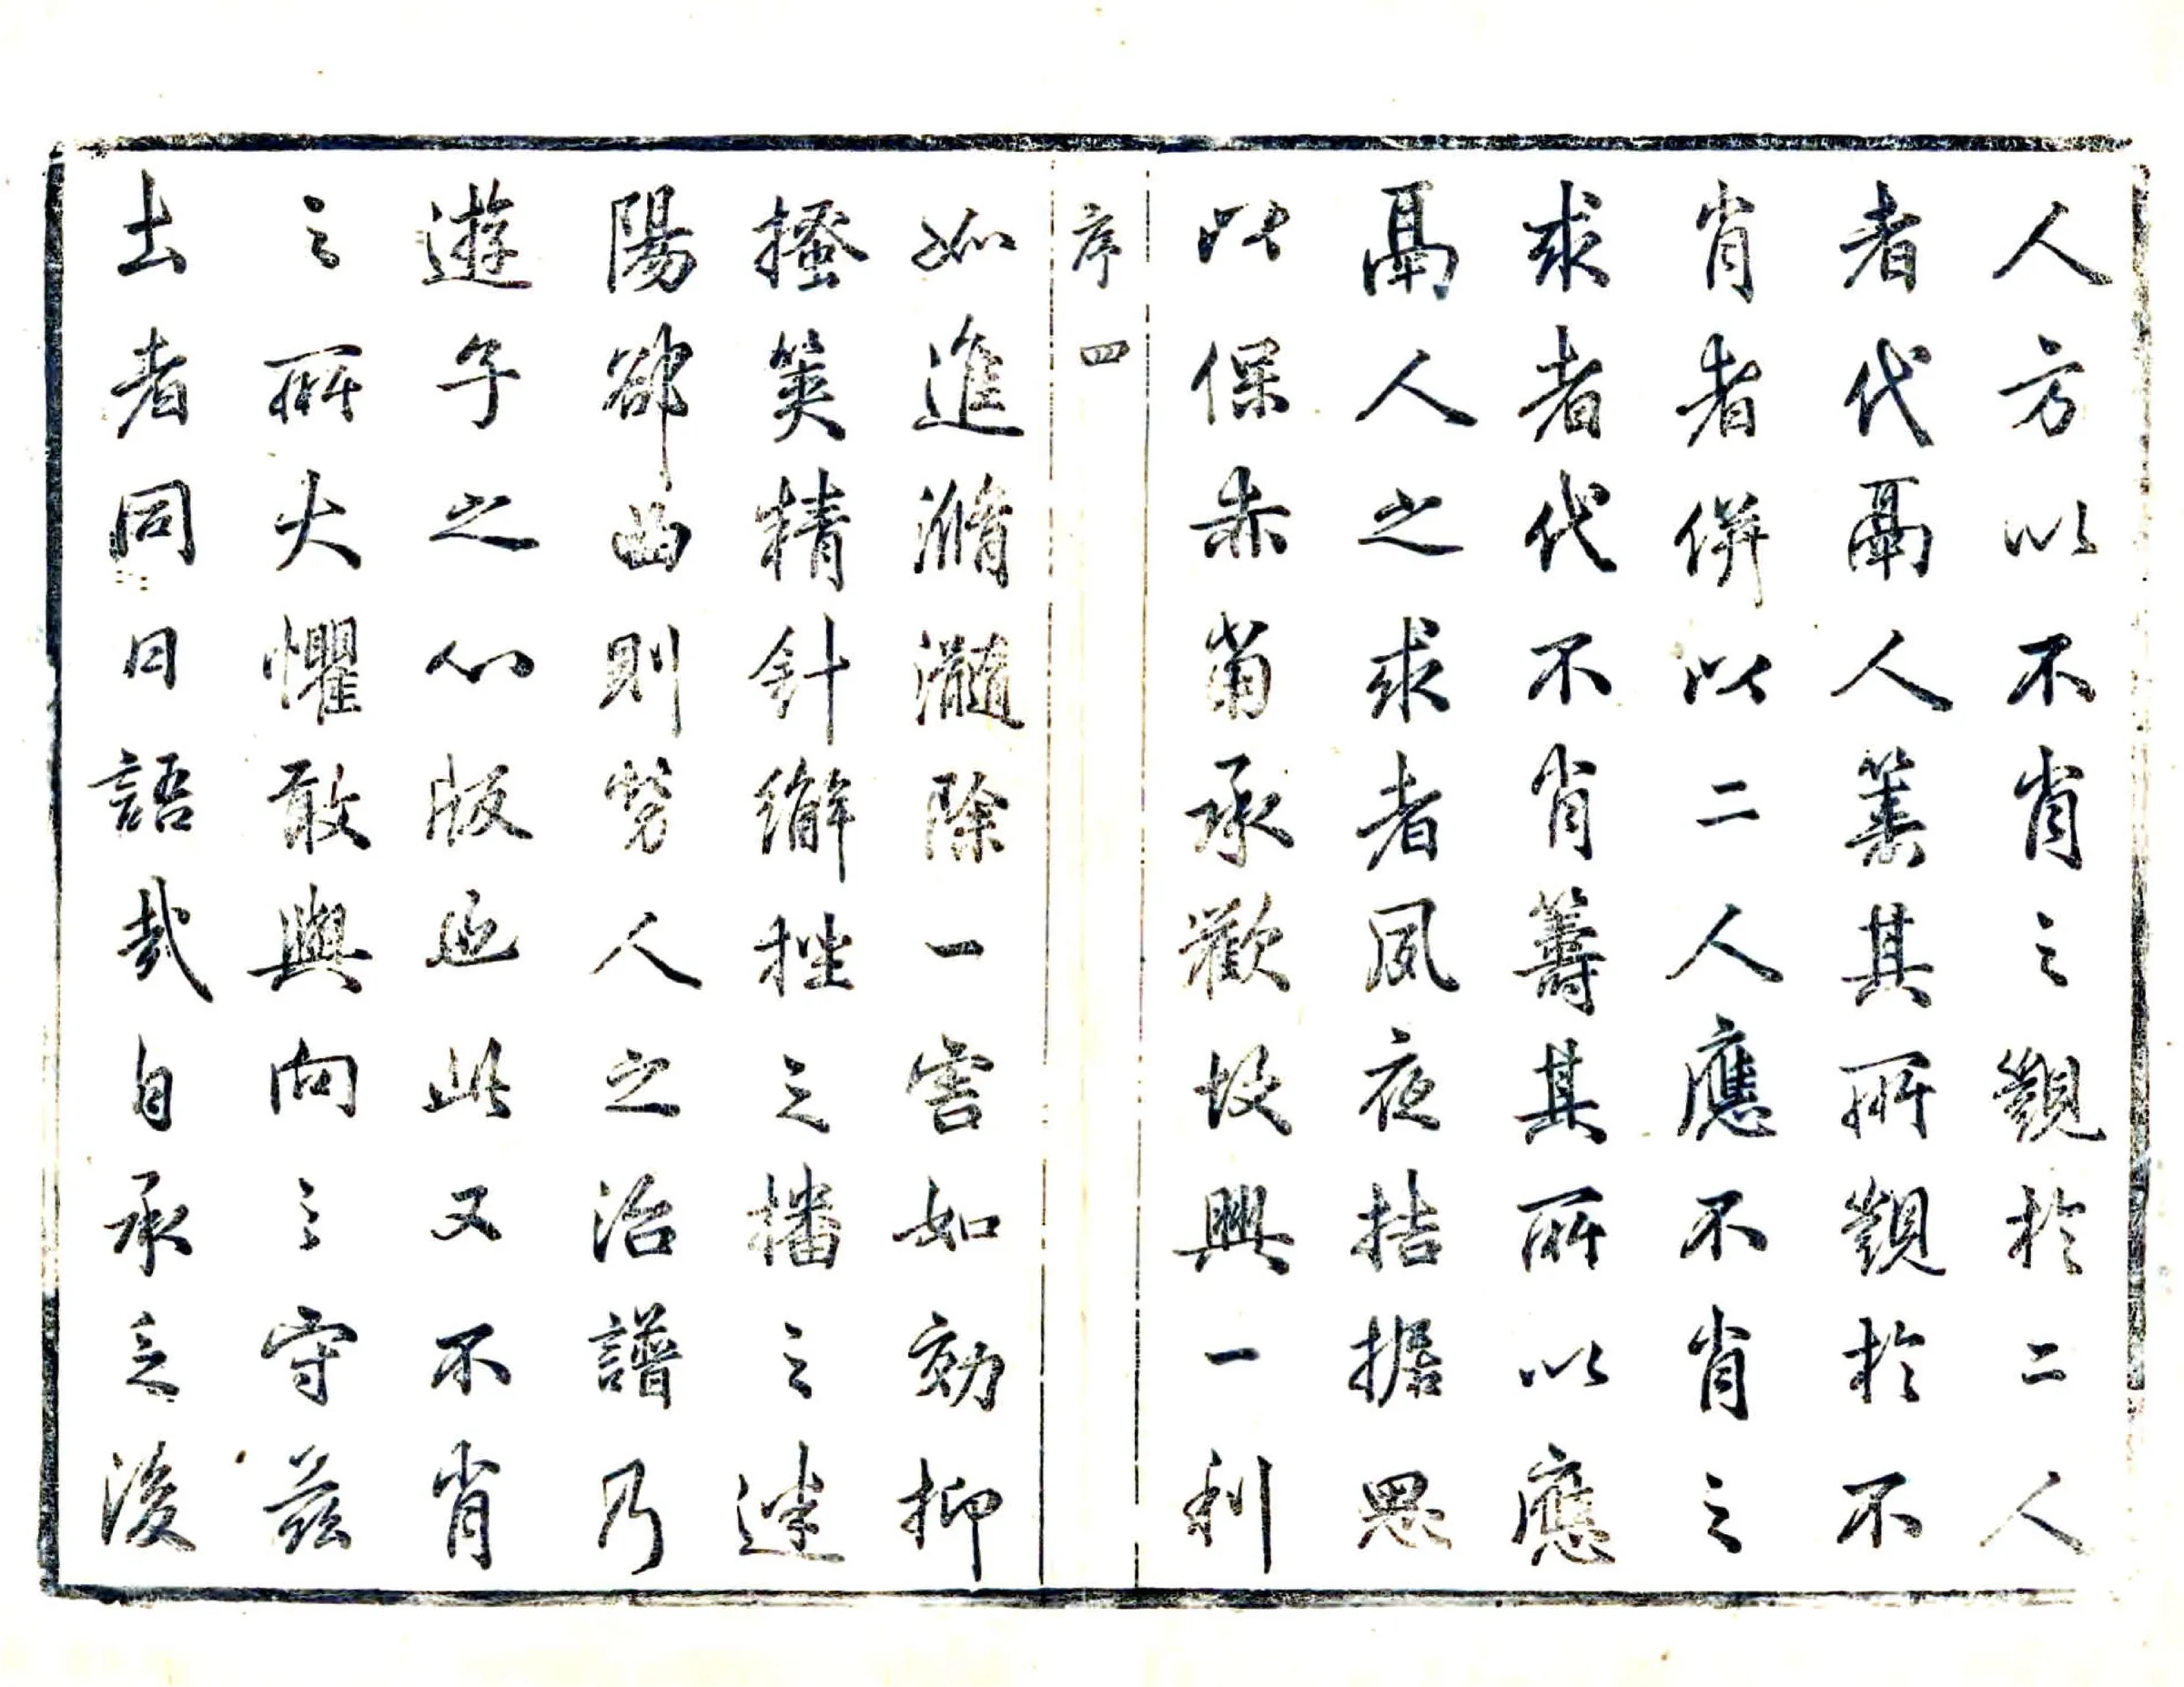 人方以不肖之觀於二人
者代鬲人籌其所觀於不
肖者併以二人應不肖之
求者代不肖籌其所以應
鬲人之求者夙夜拮据思
以保赤葡承歡故興一利
序四
如進滫瀡除一害如効抑
搔策精針澼挫之播之迷
陽郤曲則勞人之治譜乃
遊子之心版也此又不肖
之所大懼敢與向之守茲
土者同日語哉自承乏後